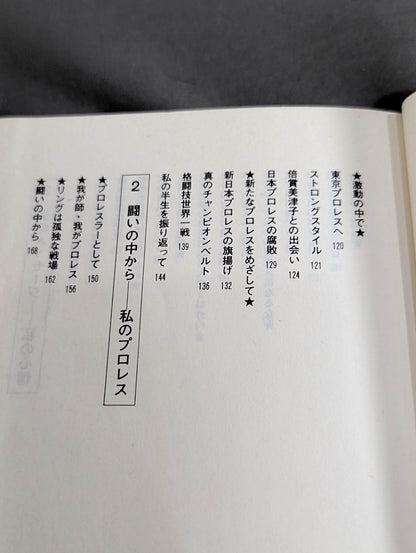 ★激動の中で★
東京プロレスへ 120
ストロングスタイル 121
倍賞美津子との出会い 124
日本プロレスの腐敗 129
★新たなプロレスをめざして★
新日本プロレスの旗揚げ 132
真のチャンピオンベルト 136
格闘技世界一戦 139
私の半生を振り返って 144
2 闘いの中から——私のプロレス
★プロレスラーとして 150
★我が師・我がプロレス 156
★リングは孤独な戦場 162
★闘いの中から 168